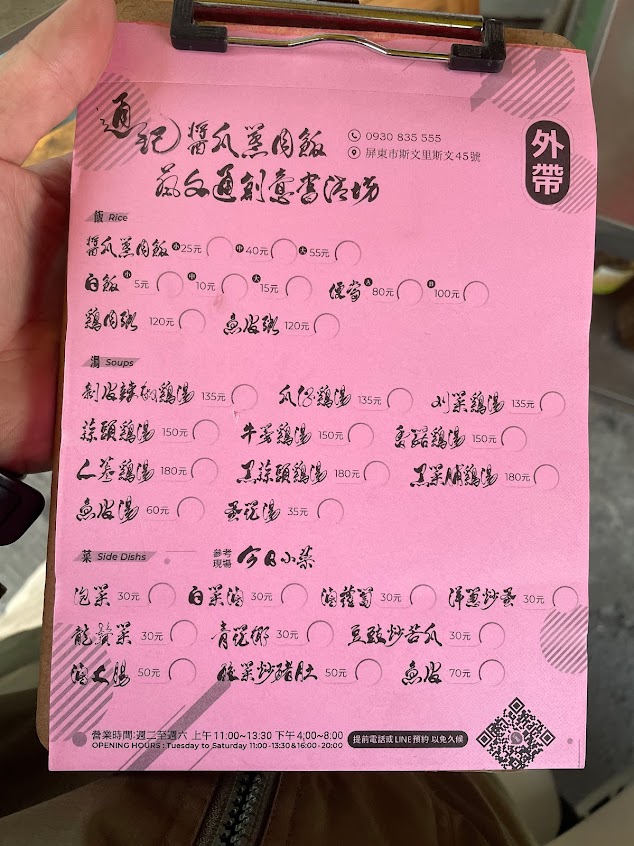 通記 醬瓜蒸肉飯
0930 835 555
屏東市斯文里斯文45號
外帶
蔬文通創意書法坊
飯 Rice
醬瓜蒸肉飯 小25元 中40元 大55元
白飯 小5元 中10元 大15元 便當 大80元 100元
鷄肉粥 120元 魚皮粥 120元
湯 Soups
剝皮辣椒鷄湯 135元 瓜仔鷄湯 135元 刈菜鷄湯 135元
蒜頭鷄湯 150元 牛蒡鷄湯 150元 香菇鷄湯 150元
仁蔘鷄湯 180元 黑蒜頭鷄湯 180元 黑菜脯鷄湯 180元
魚皮湯 60元 蛋花湯 35元
菜 Side Dishs 參考現場 今日小菜
泡菜 30元 白菜滷 30元 滷蘿蔔 30元 洋蔥炒蛋 30元
龍鬚菜 30元 青花椰 30元 豆豉炒苦瓜 30元
滷大腸 50元 酸菜炒豬肚 50元 魚皮 70元
營業時間:週二至週六 上午 11:00~13:30 下午 4:00~8:00
OPENING HOURS : Tuesday to Saturday 11:00 -13:30 & 16:00 - 20:00
提前電話或 LINE 預約 以免久候